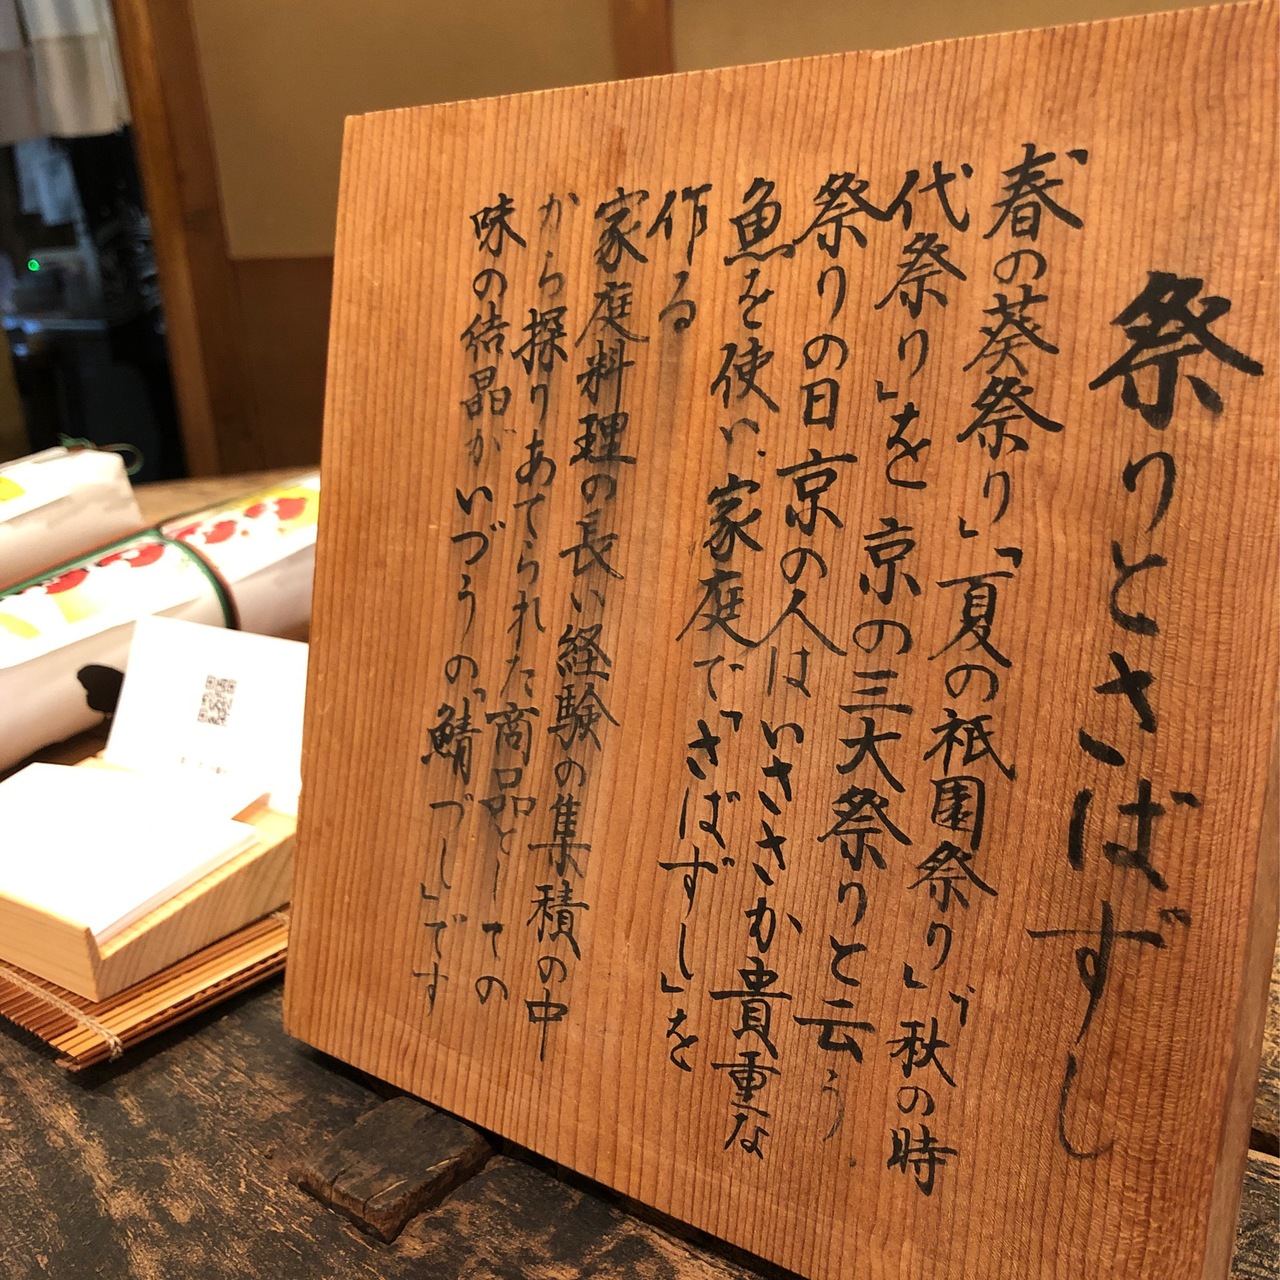 祭りとさばずし
「春の葵祭り」「夏の祇園祭り」「秋の時
代祭り」を京の三大祭りと云う
祭りの日京の人はいささか貴重な
魚を使い家庭で「さばずし」を
作る
家庭料理の長い経験の集積の中
から探りあてられた商品としての
味の結晶がいづうの「鯖づし」です